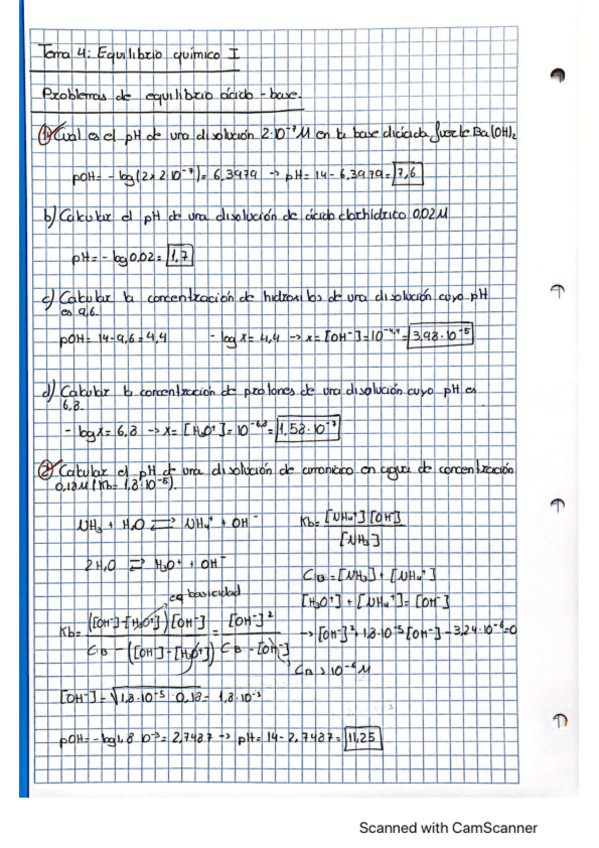 Tema 4: Equilibrio químico I
Problemas de equilibrio ácido-base.
1) Cual es el pH de una disolución 2·10⁻⁷M en la base diácida fuerte Ba(OH)₂
pOH = -log(2×2·10⁻⁷) = 6,3979 → pH = 14 - 6,3979 = 7,6
b) Calcular el pH de una disolución de ácido clorhídrico 0,02M
pH = -log 0,02 = 1,7
c) Calcular la concentración de hidroxilos de una disolución cuyo pH
es 9,6.
pOH = 14 - 9,6 = 4,4 -log x = 4,4 → x = [OH⁻] = 10⁻⁴·⁴ = 3,98·10⁻⁵
d) Calcular la concentración de protones de una disolución cuyo pH es
6,8.
-log x = 6,8 → x = [H₃O⁺] = 10⁻⁶·⁸ = 1,58·10⁻⁷
2) Calcular el pH de una disolución de amoniaco en agua de concentración
0,18M (Kb = 1,8·10⁻⁵).
NH₃ + H₂O ⇌ NH₄⁺ + OH⁻ Kb = [NH₄⁺][OH⁻] / [NH₃]
2H₂O ⇌ H₃O⁺ + OH⁻
C_B = [NH₃] + [NH₄⁺]
eq basicidad
[H₃O⁺] + [NH₄⁺] = [OH⁻]
Kb = ([OH⁻]-[H₃O⁺])[OH⁻] / C_B - ([OH⁻]-[H₃O⁺]) = [OH⁻]² / C_B - [OH⁻] → [OH⁻]² + 1,8·10⁻⁵[OH⁻] - 3,24·10⁻⁶ = 0
C_B > 10⁻⁶M
[OH⁻] = √1,8·10⁻⁵·0,18 = 1,8·10⁻³
pOH = -log 1,8·10⁻³ = 2,7487 → pH = 14 - 2,7487 = 11,25
Scanned with CamScanner